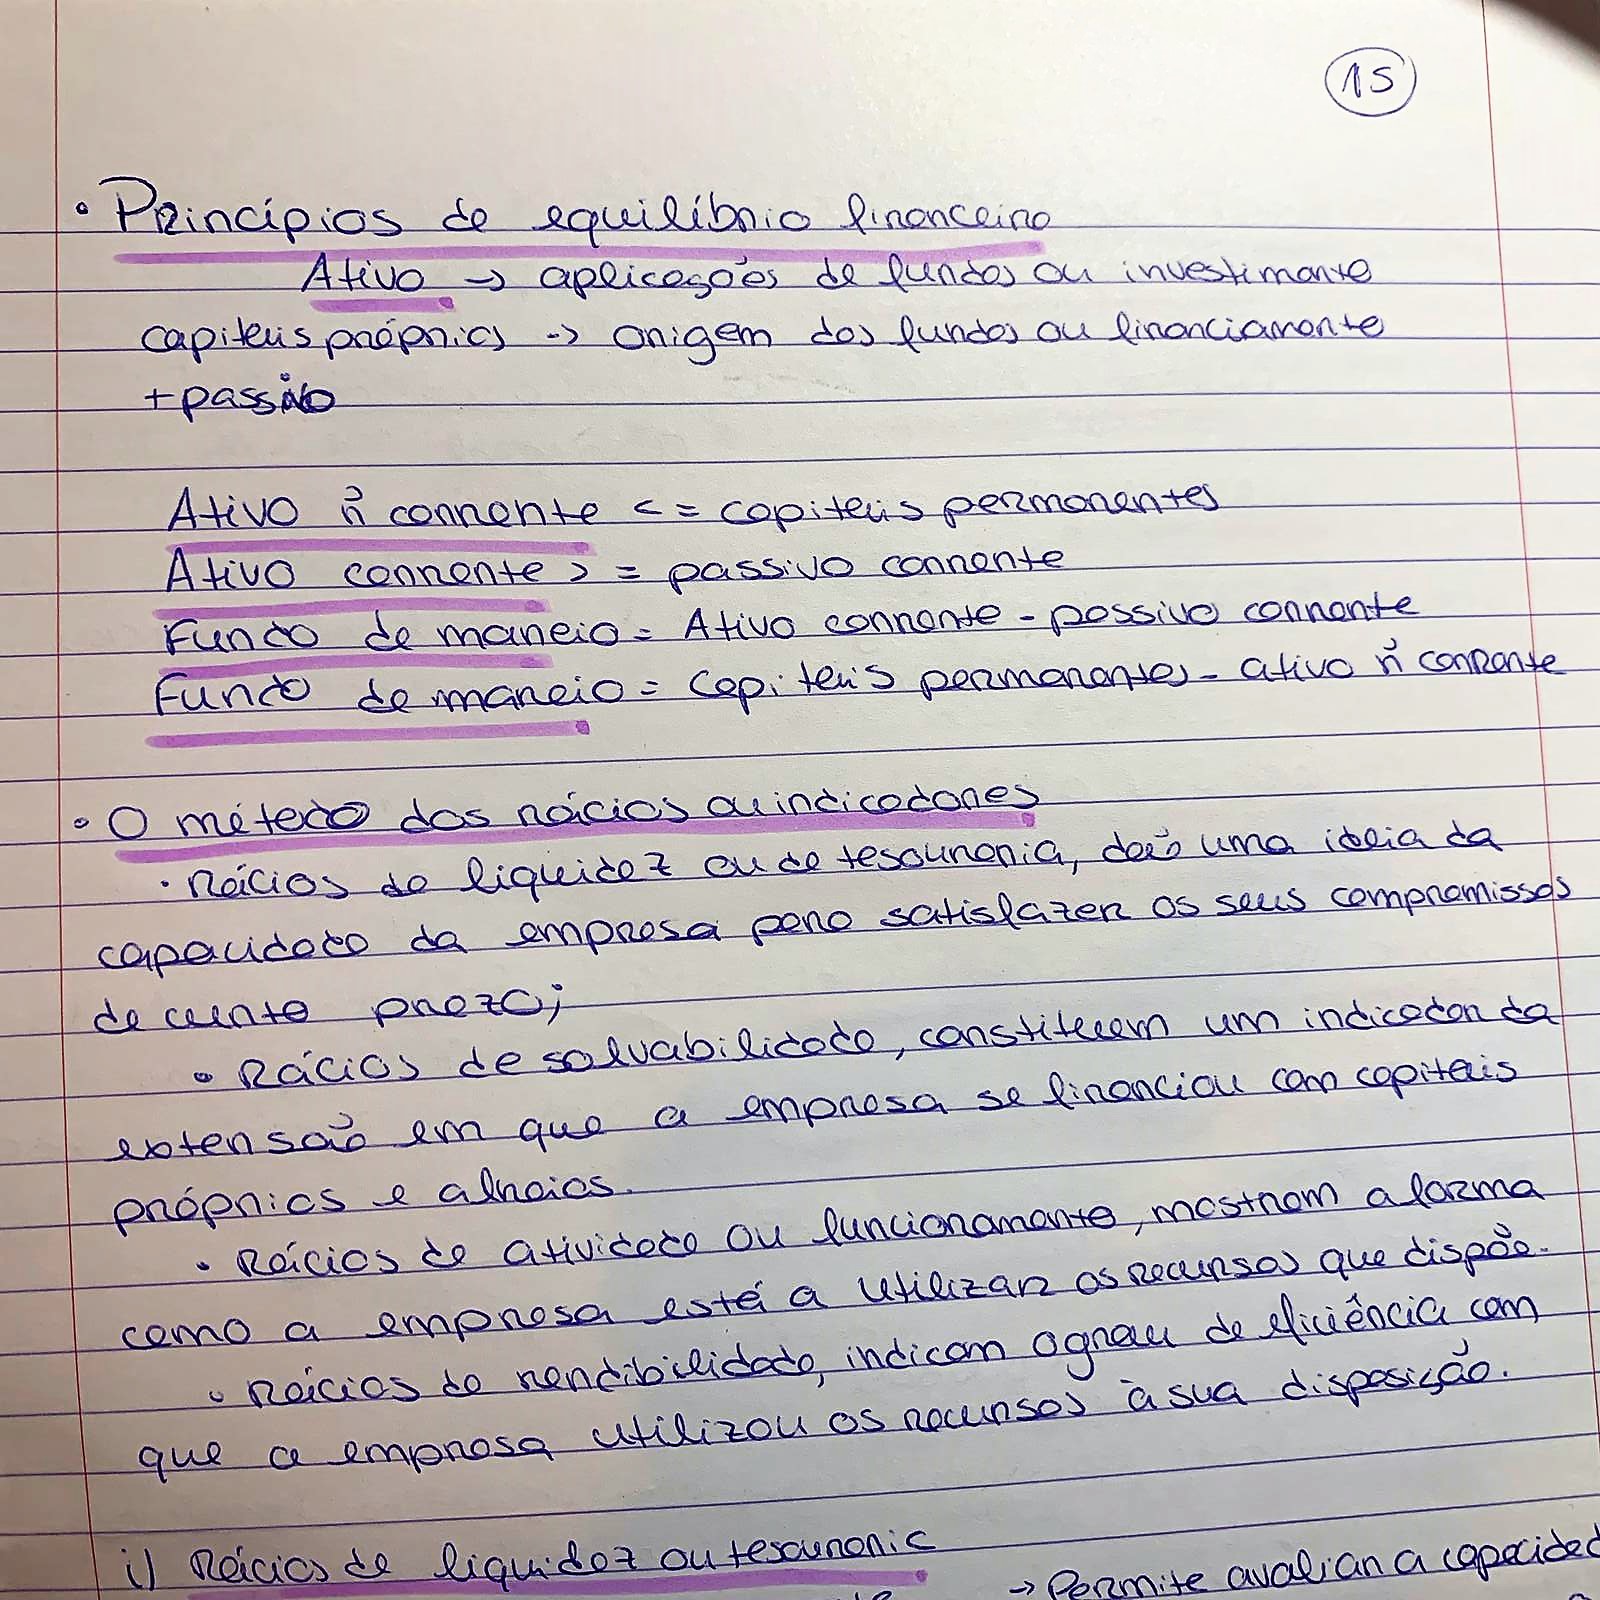 15
• Princípios de equilíbrio financeiro
Ativo → aplicações de fundos ou investimento
capitais próprios → origem dos fundos ou financiamento
+ passivo
Ativo ñ corrente <= capitais permanentes
Ativo corrente >= passivo corrente
Fundo de maneio = Ativo corrente - passivo corrente
Fundo de maneio = capitais permanentes - ativo ñ corrente
• O método dos rácios ou indicadores
• Rácios de liquidez ou de tesouraria, dão uma ideia da
capacidade da empresa para satisfazer os seus compromissos
de curto prazo;
• Rácios de solvabilidade, constituem um indicador da
extensão em que a empresa se financiou com capitais
próprios e alheios.
• Rácios de atividade ou funcionamento, mostram a forma
como a empresa está a utilizar os recursos que dispõe.
• Rácios de rendibilidade, indicam o grau de eficiência com
que a empresa utilizou os recursos à sua disposição.
i) Rácios de liquidez ou tesouraria
→ Permite avaliar a capacidad